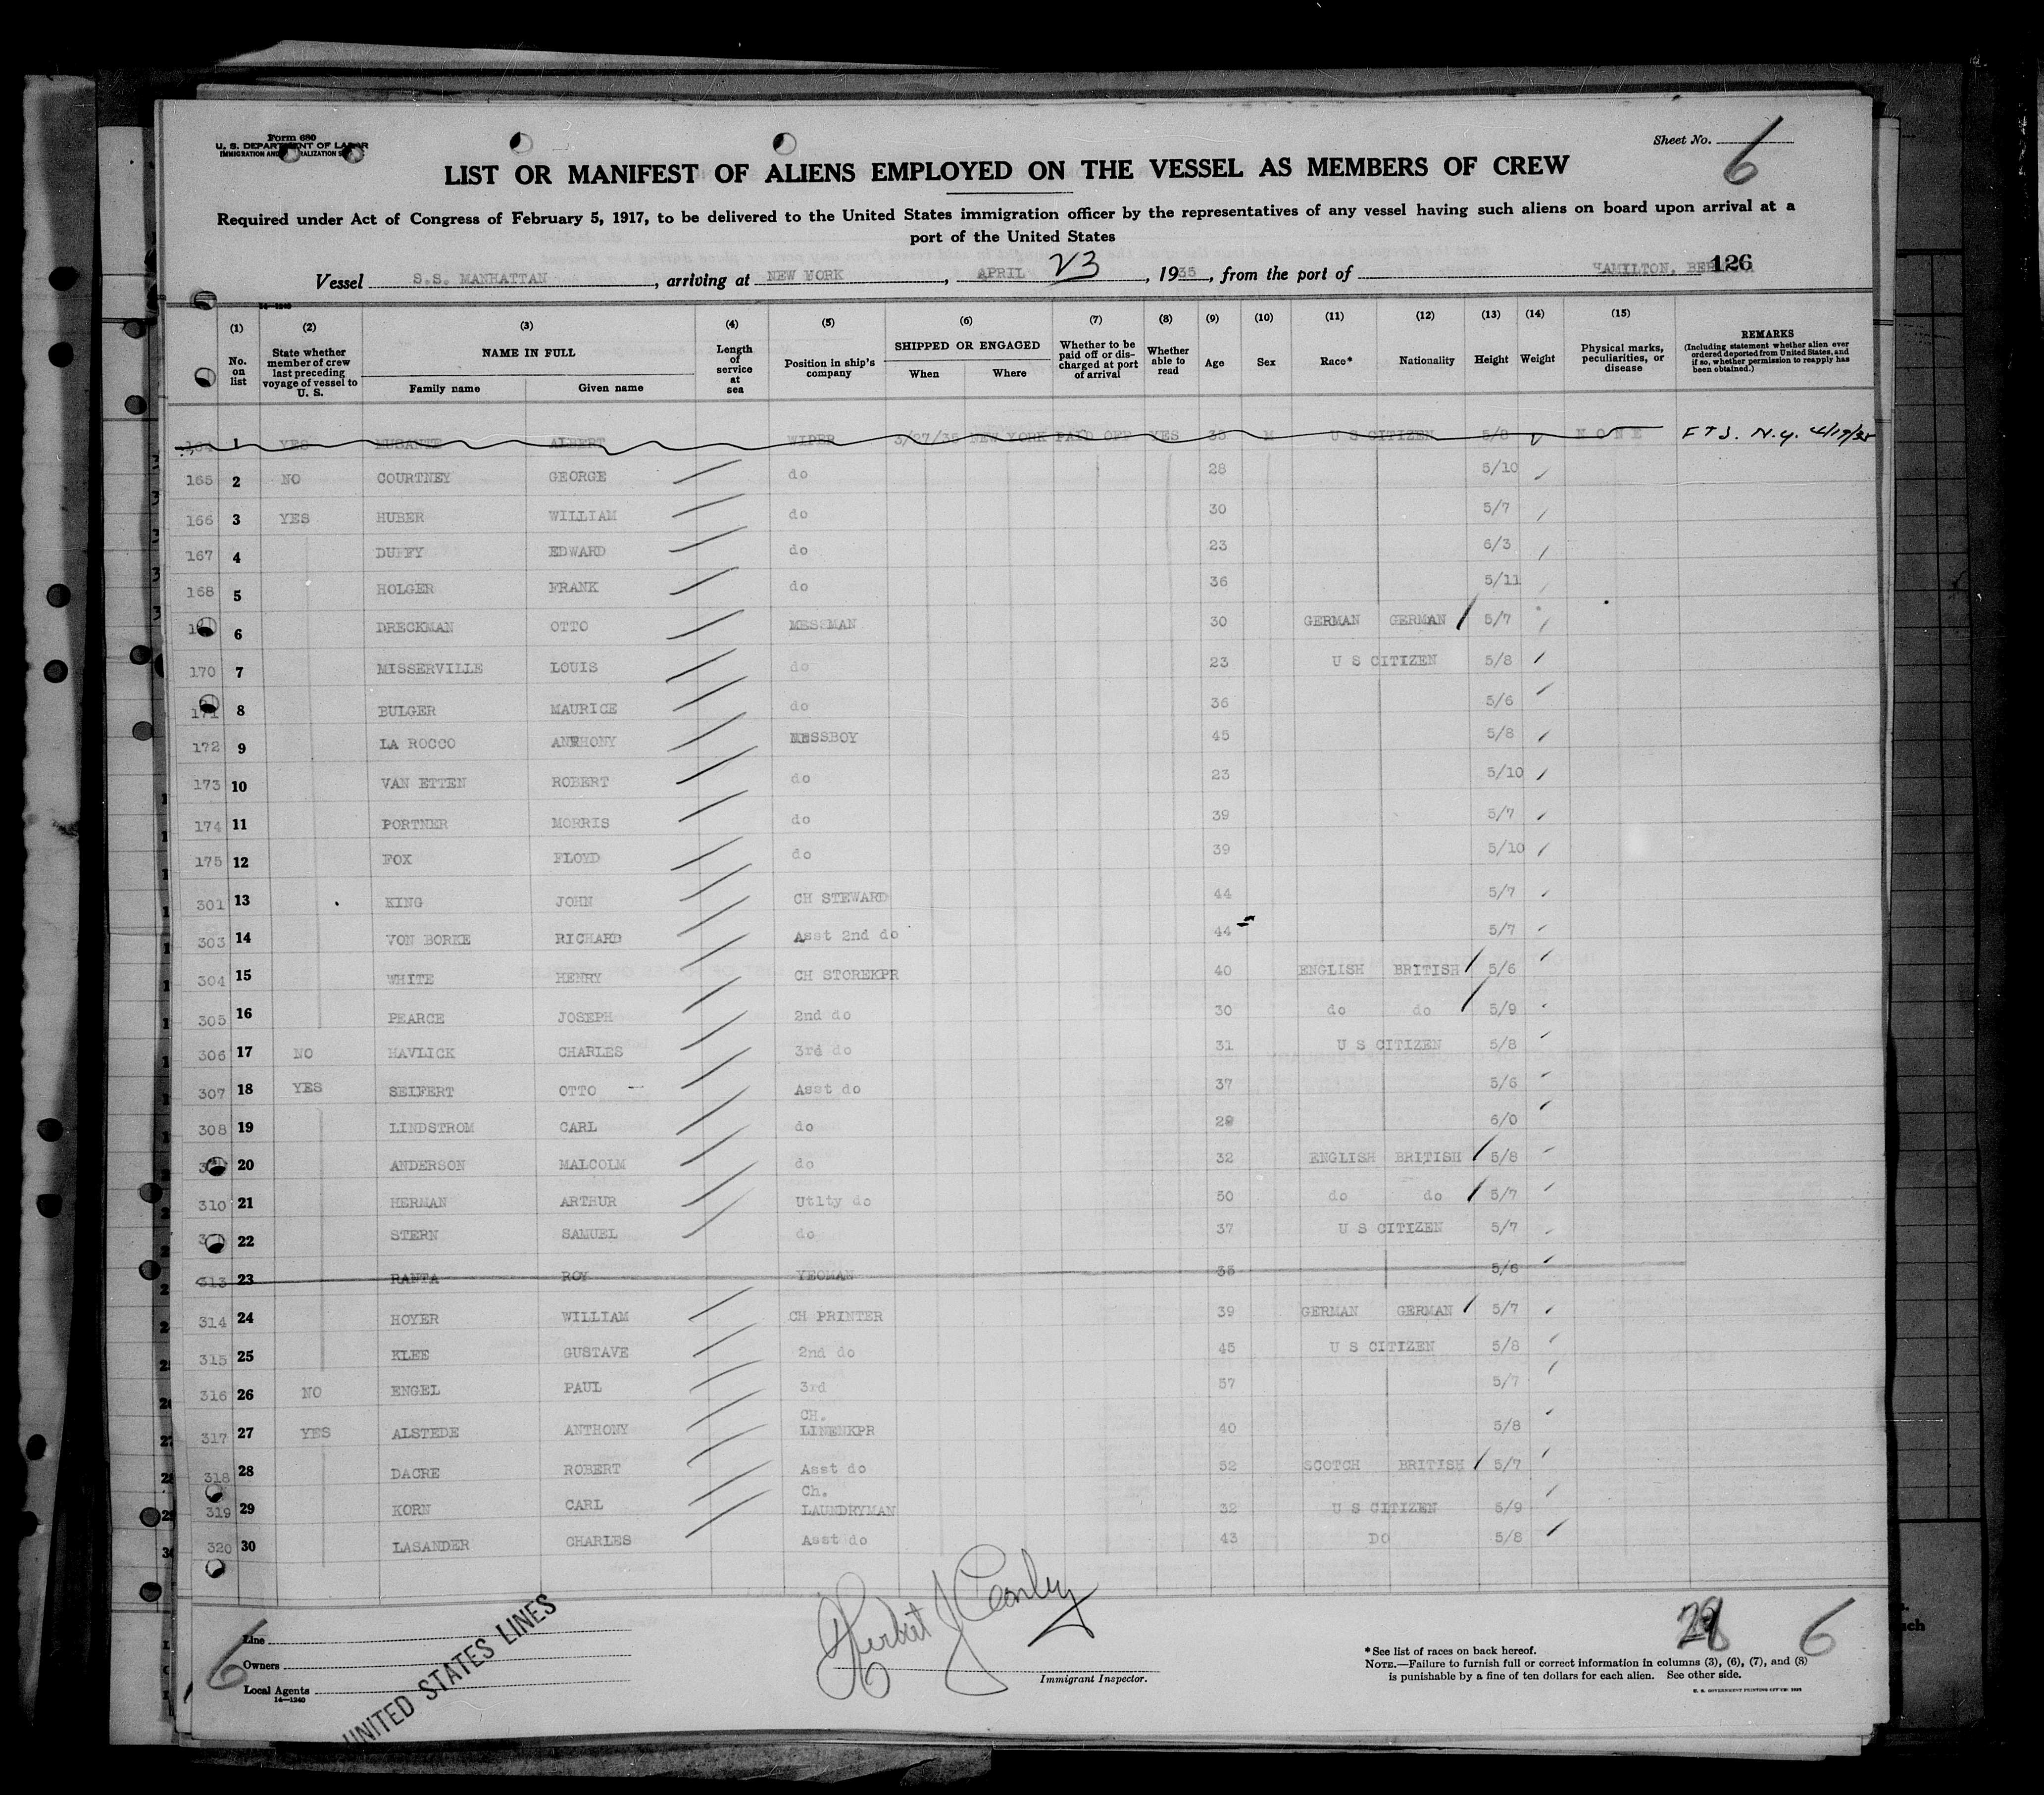 Form 680
U. S. DEPARTMENT OF LABOR
IMMIGRATION AND NATURALIZATION SERVICE
Sheet No. 6
LIST OR MANIFEST OF ALIENS EMPLOYED ON THE VESSEL AS MEMBERS OF CREW
Required under Act of Congress of February 5, 1917, to be delivered to the United States immigration officer by the representatives of any vessel having such aliens on board upon arrival at a
port of the United States
Vessel S.S. MANHATTAN, arriving at NEW YORK, APRIL 23, 1935, from the port of HAMILTON, 126
14—1240
(1) (2) (3) (4) (5) (6) (7) (8) (9) (10) (11) (12) (13) (14) (15)
No. on list
State whether member of crew last preceding voyage of vessel to U. S.
NAME IN FULL
Family name Given name
Length of service at sea
Position in ship's company
SHIPPED OR ENGAGED
When Where
Whether to be paid off or discharged at port of arrival
Whether able to read
Age Sex Race* Nationality Height Weight
Physical marks, peculiarities, or disease
REMARKS
(Including statement whether alien ever ordered deported from United States, and if so, whether permission to reapply has been obtained.)
164 1 YES MUSANTE ALBERT WIPER 3/27/35 NEW YORK PAID OFF YES 35 M U S CITIZEN 5/8 NONE F T J. N.y. 4/19/35
165 2 NO COURTNEY GEORGE do 28 5/10
166 3 YES HUBER WILLIAM do 30 5/7
167 4 DUFFY EDWARD do 23 6/3
168 5 HOLGER FRANK do 36 5/11
6 DRECKMAN OTTO MESSMAN 30 GERMAN GERMAN 5/7
170 7 MISSERVILLE LOUIS do 23 U S CITIZEN 5/8
171 8 BULGER MAURICE do 36 5/6
172 9 LA ROCCO ANTHONY MESSBOY 45 5/8
173 10 VAN ETTEN ROBERT do 23 5/10
174 11 PORTNER MORRIS do 39 5/7
175 12 FOX FLOYD do 39 5/10
301 13 KING JOHN CH STEWARD 44 5/7
303 14 VON BORKE RICHARD Asst 2nd do 44 5/7
304 15 WHITE HENRY CH STOREKPR 40 ENGLISH BRITISH 5/6
305 16 PEARCE JOSEPH 2nd do 30 do do 5/9
306 17 NO HAVLICK CHARLES 3rd do 31 U S CITIZEN 5/8
307 18 YES SEIFERT OTTO Asst do 37 5/6
308 19 LINDSTROM CARL do 29 6/0
20 ANDERSON MALCOLM do 32 ENGLISH BRITISH 5/8
310 21 HERMAN ARTHUR Utlty do 50 do do 5/7
22 STERN SAMUEL do 37 U S CITIZEN 5/7
313 23 RANTA ROY YEOMAN 35 5/6
314 24 HOYER WILLIAM CH PRINTER 39 GERMAN GERMAN 5/7
315 25 KLEE GUSTAVE 2nd do 45 U S CITIZEN 5/8
316 26 NO ENGEL PAUL 3rd 57 5/7
317 27 YES ALSTEDE ANTHONY CH. LINENKPR 40 5/8
318 28 DACRE ROBERT Asst do 52 SCOTCH BRITISH 5/7
319 29 KORN CARL Ch. LAUNDRYMAN 32 U S CITIZEN 5/9
320 30 LASANDER CHARLES Asst do 43 DO 5/8
6
Line
Owners
Local Agents
14—1240
UNITED STATES LINES
Herbert J Conley
Immigrant Inspector.
6
*See list of races on back hereof.
NOTE.—Failure to furnish full or correct information in columns (3), (6), (7), and (8)
is punishable by a fine of ten dollars for each alien. See other side.